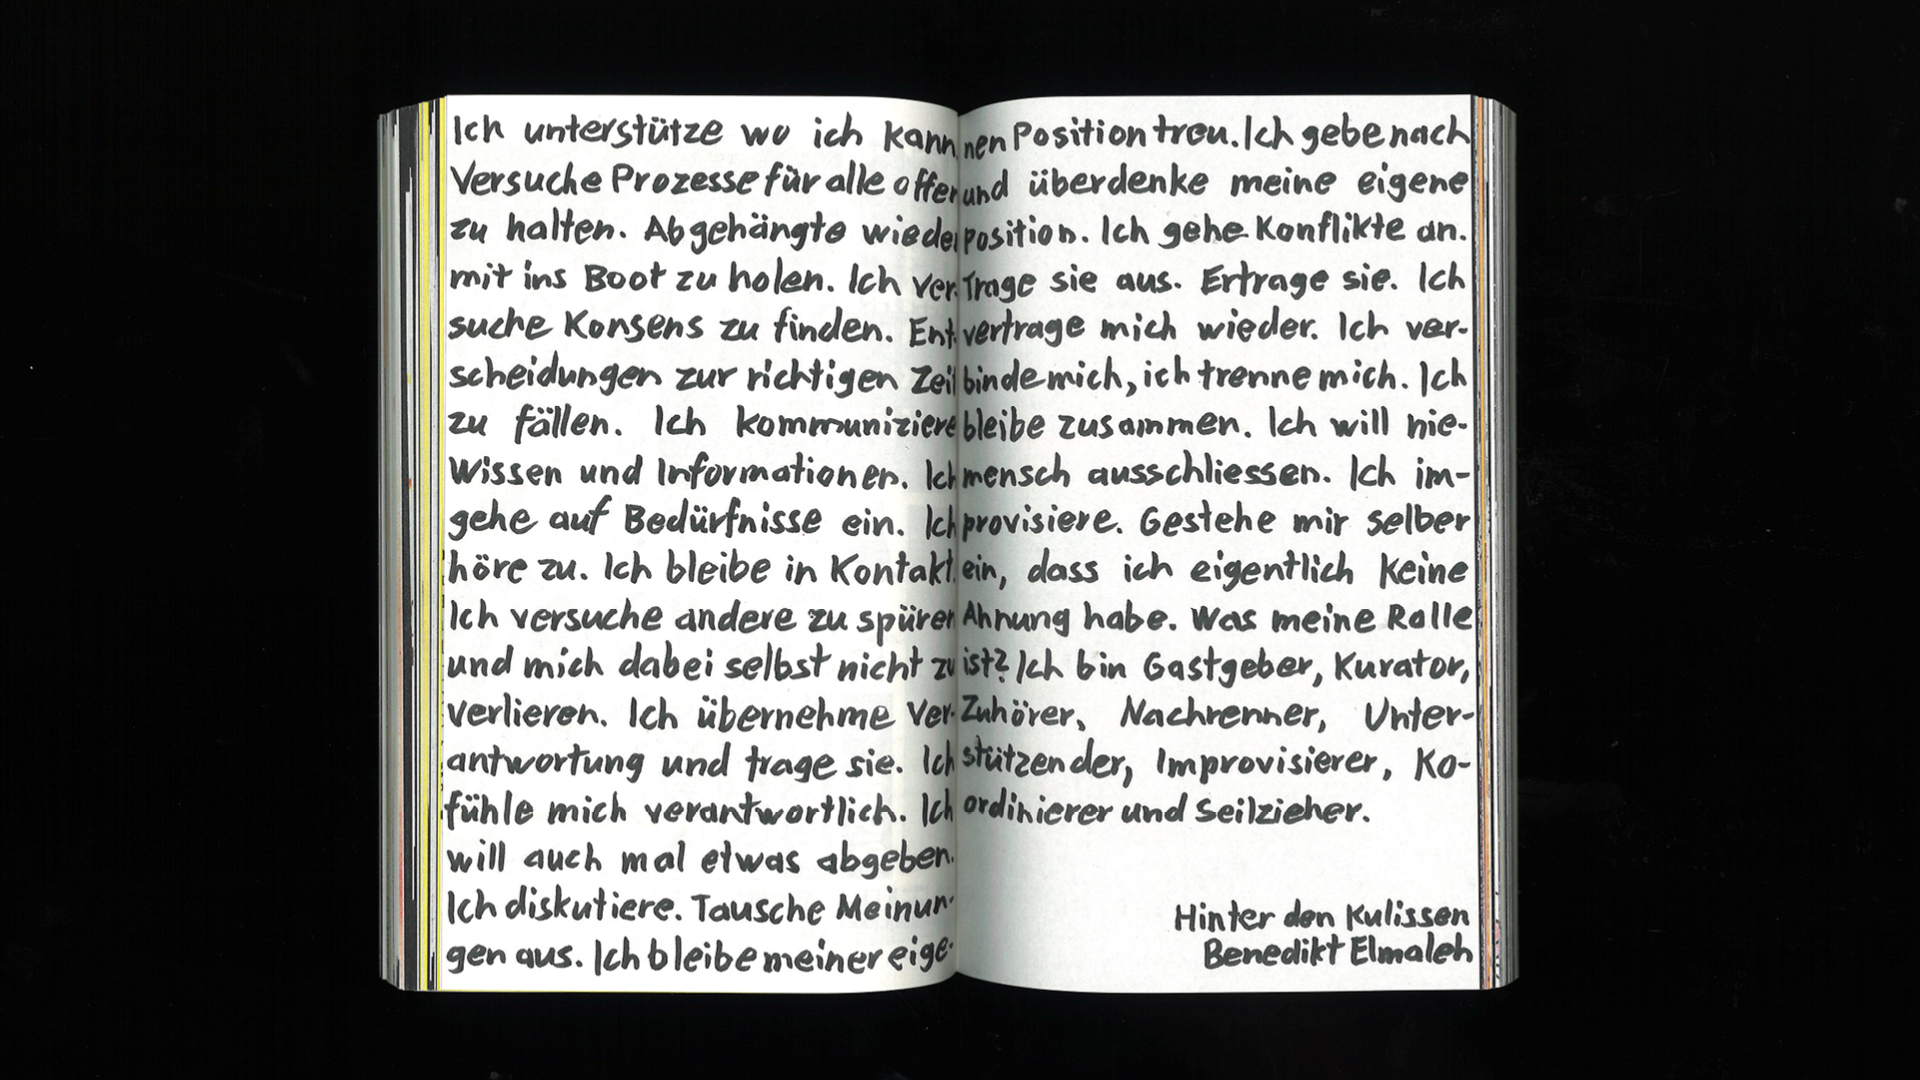 Ich unterstütze wo ich kann.
Versuche Prozesse für alle offen
zu halten. Abgehängte wieder
mit ins Boot zu holen. Ich ver-
suche Konsens zu finden. Ent-
scheidungen zur richtigen Zeit
zu fällen. Ich kommuniziere
Wissen und Informationen. Ich
gehe auf Bedürfnisse ein. Ich
höre zu. Ich bleibe in Kontakt.
Ich versuche andere zu spüren
und mich dabei selbst nicht zu
verlieren. Ich übernehme Ver-
antwortung und trage sie. Ich
fühle mich verantwortlich. Ich
will auch mal etwas abgeben.
Ich diskutiere. Tausche Meinun-
gen aus. Ich bleibe meiner eige-
nen Position treu. Ich gebe nach
und überdenke meine eigene
position. Ich gehe Konflikte an.
Trage sie aus. Ertrage sie. Ich
vertrage mich wieder. Ich ver-
binde mich, ich trenne mich. Ich
bleibe zusammen. Ich will nie-
mensch ausschliessen. Ich im-
provisiere. Gestehe mir selber
ein, dass ich eigentlich keine
Ahnung habe. Was meine Rolle
ist? Ich bin Gastgeber, Kurator,
Zuhörer, Nachrenner, Unter-
stützender, Improvisierer, Ko-
ordinierer und Seilzieher.
Hinter den Kulissen
Benedikt Elmaleh